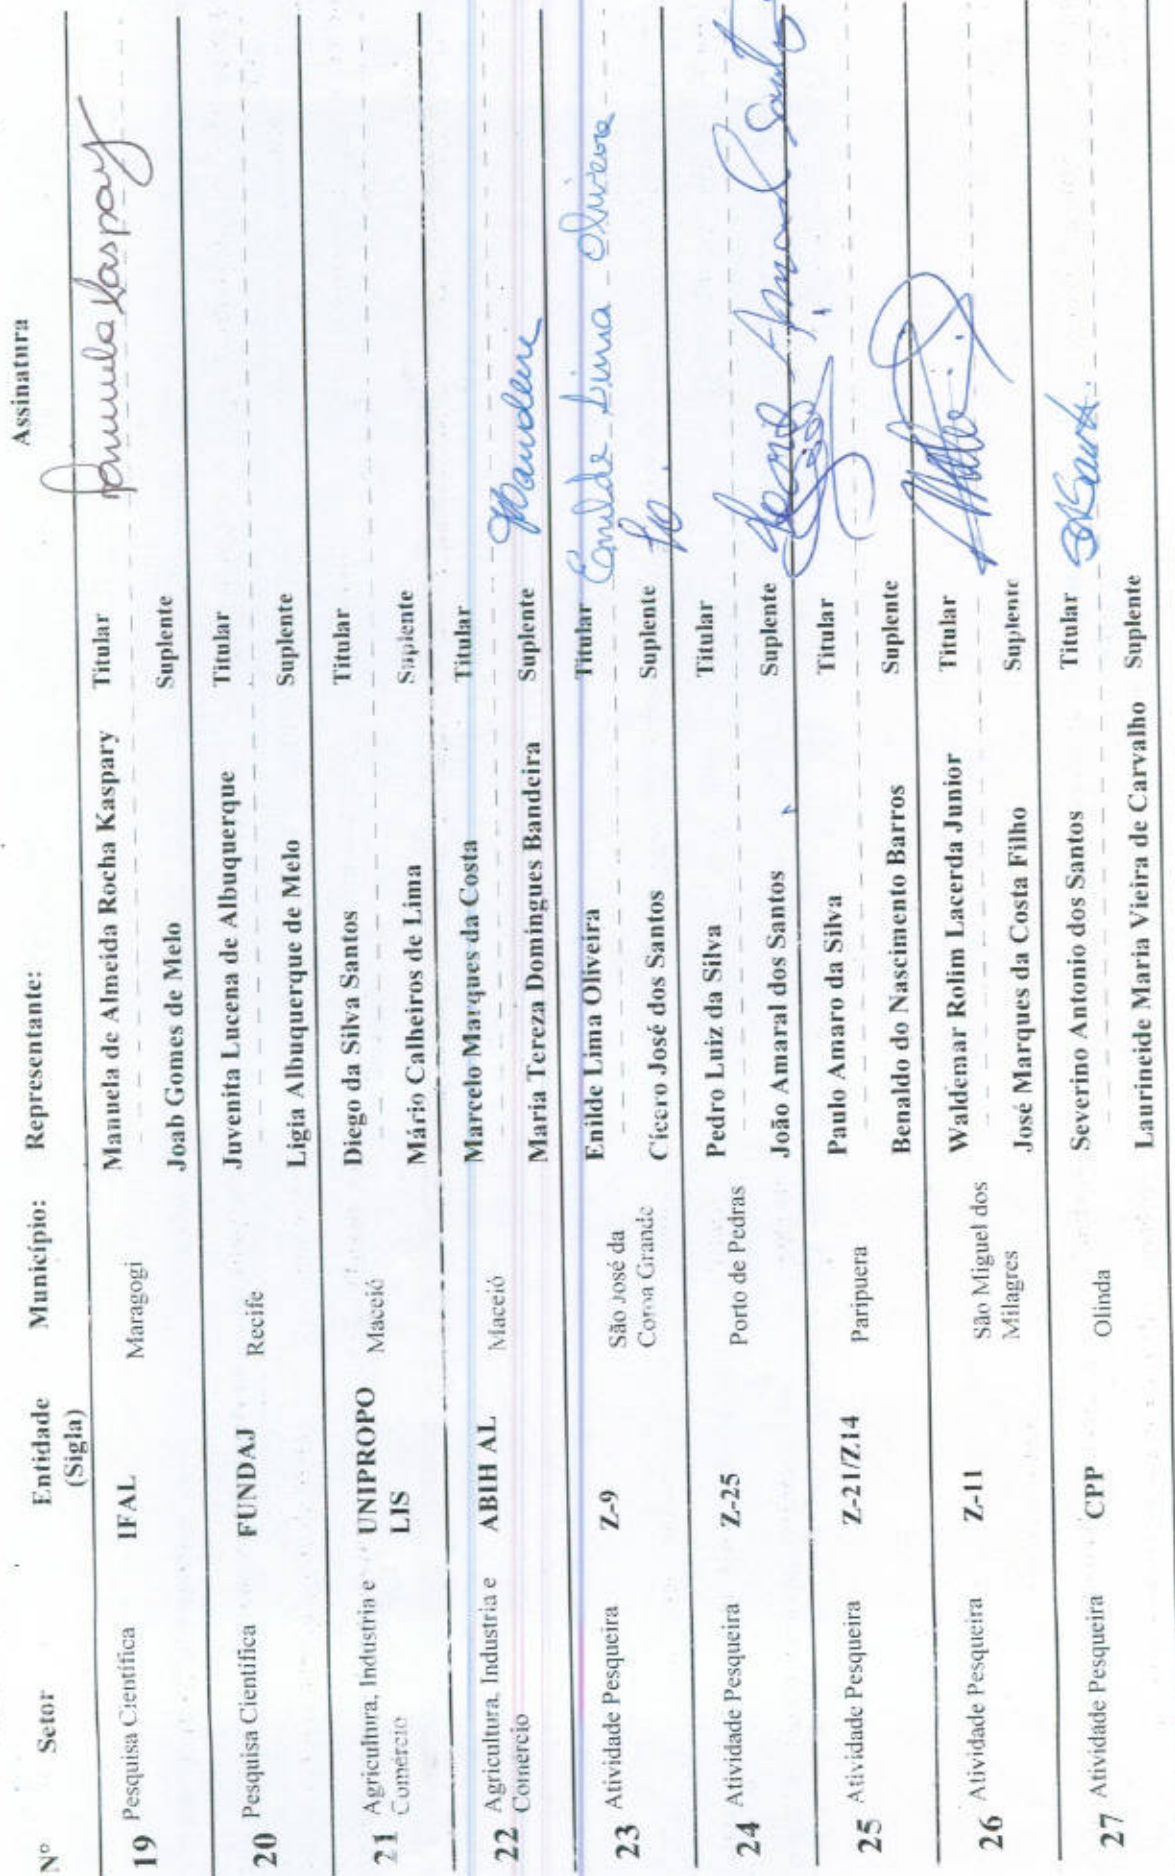 Nº Setor Entidade Município: Representante: Assinatura
(Sigla)
19 Pesquisa Científica IFAL Maragogi Manuela de Almeida Rocha Kaspary Titular
Joab Gomes de Melo Suplente
20 Pesquisa Cientifica FUNDAJ Recife Juvenita Lucena de Albuquerque Titular
Ligia Albuquerque de Melo Suplente
21 Agricultura, Industria e UNIPROPO Maceió Diego da Silva Santos Titular
Comércio LIS Mário Calheiros de Lima Suplente
22 Agricultura, Industria e ABIH AL Maceió Marcelo Marques da Costa Titular
Comercio Maria Tereza Domingues Bandeira Suplente
23 Atividade Pesqueira Z-9 São José da Enilde Lima Oliveira Titular Enilde Lima Oliveira
Coroa Grande Cícero José dos Santos Suplente
24 Atividade Pesqueira Z-25 Porto de Pedras Pedro Luiz da Silva Titular
João Amaral dos Santos Suplente
25 Atividade Pesqueira Z-21/Z14 Paripuera Paulo Amaro da Silva Titular
Benaldo do Nascimento Barros Suplente
26 Atividade Pesqueira Z-11 São Miguel dos Waldemar Rolim Lacerda Junior Titular
Milagres José Marques da Costa Filho Suplente
27 Atividade Pesqueira CPP Olinda Severino Antonio dos Santos Titular
Laurineide Maria Vieira de Carvalho Suplente